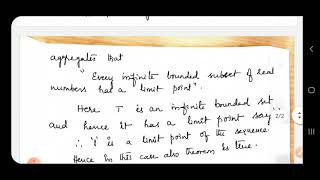 aggregates that
"Every infinite bounded subset of real
numbers has a limit point".
Here T is an infinite bounded set
and hence it has a limit point say
2/2
∴ is a limit point of the sequence.
Hence in this case also theorem is true.